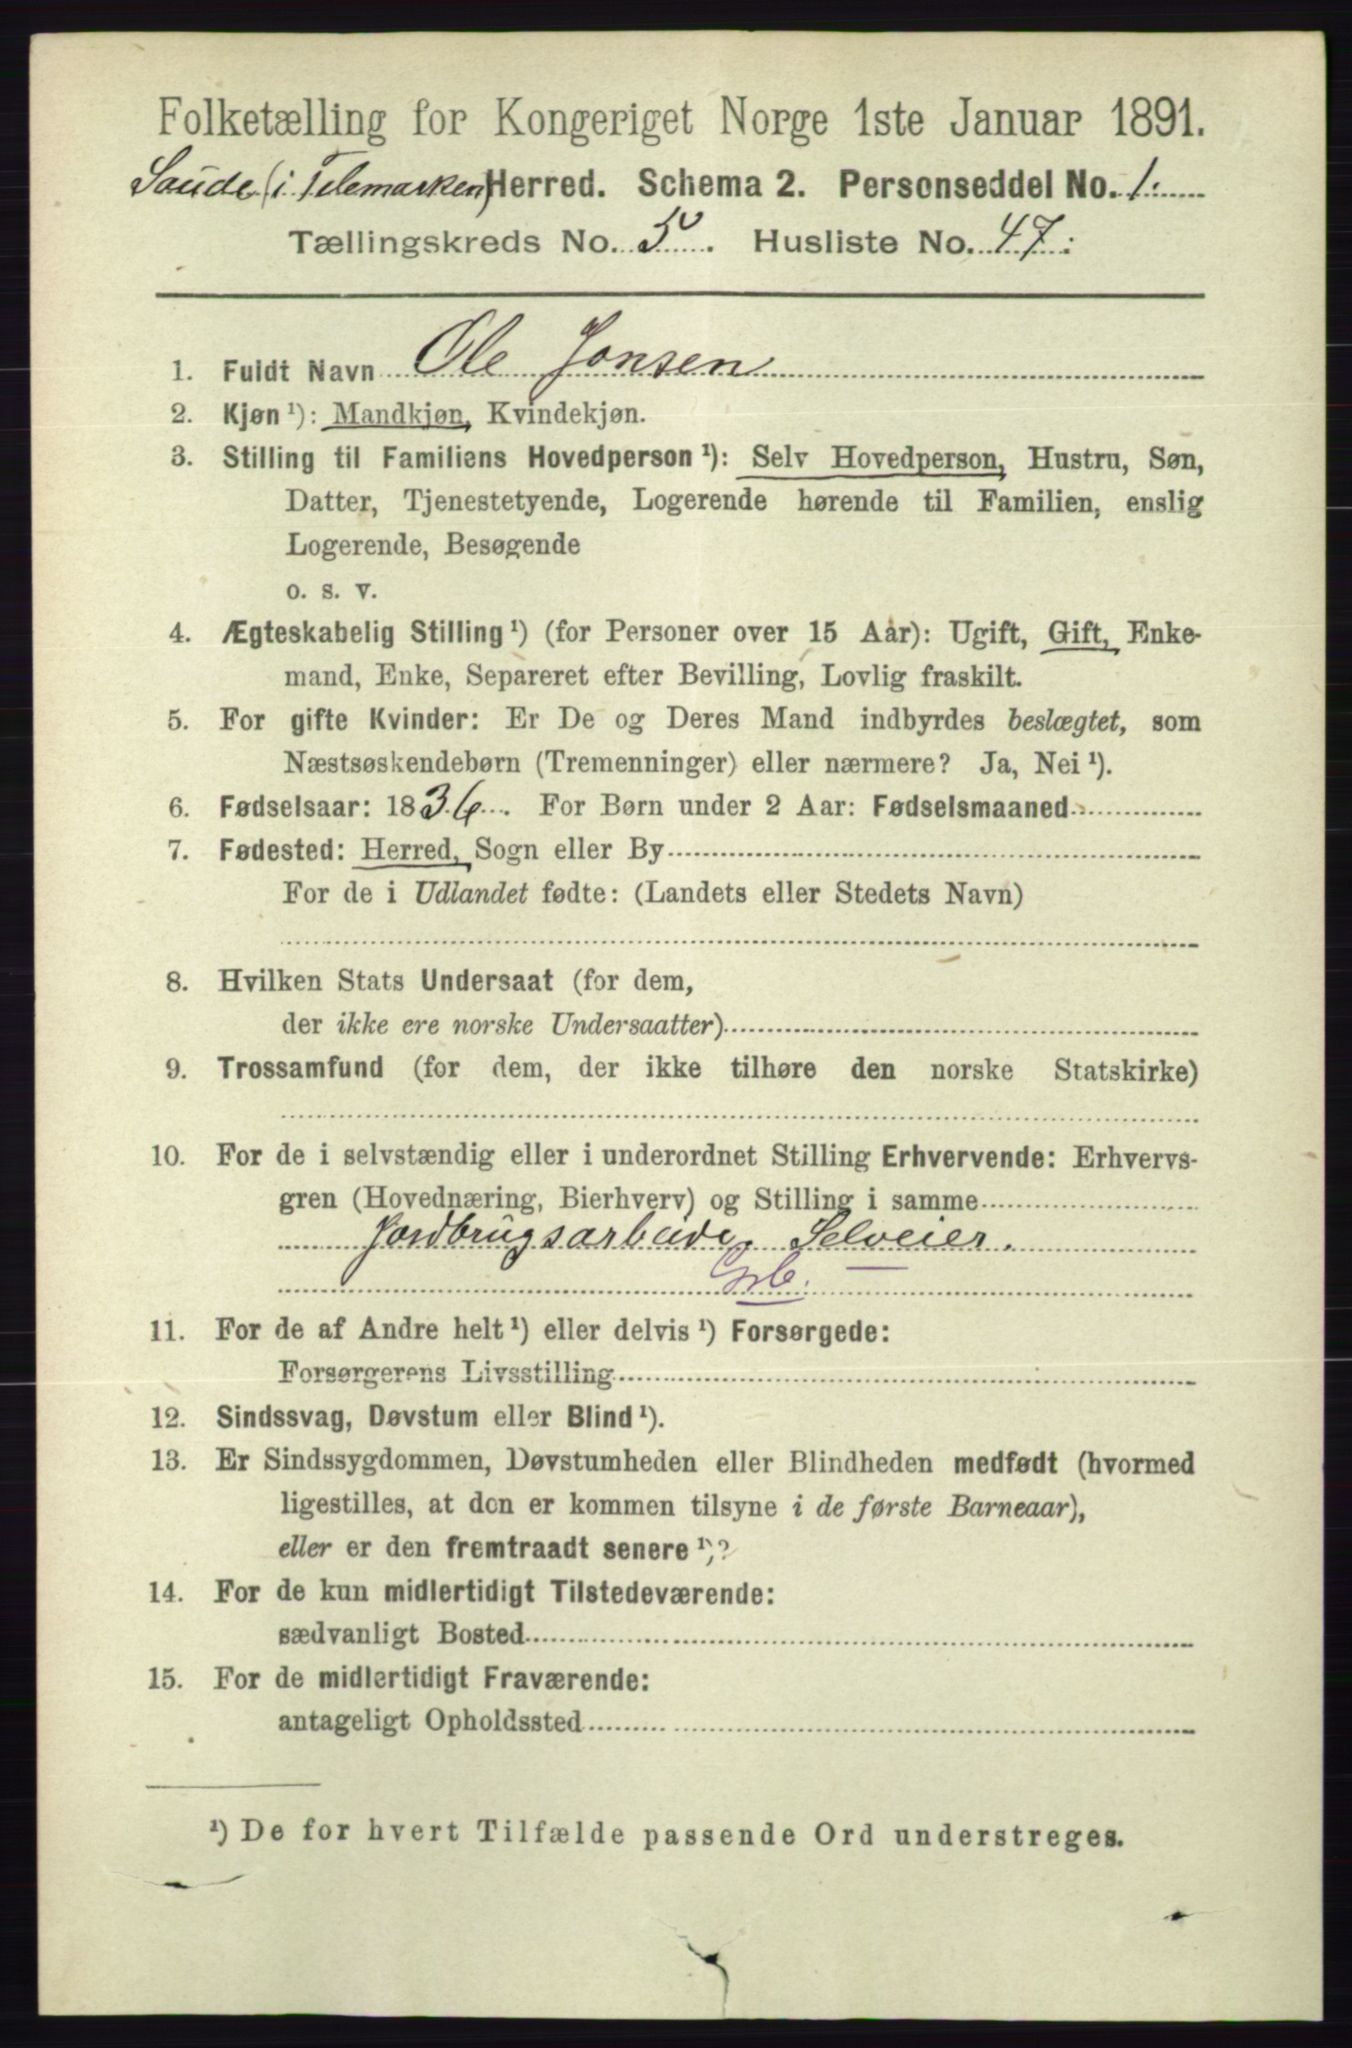 Folketælling for Kongeriget Norge 1ste Januar 1891.
Saude (i Telemarken) Herred. Schema 2. Personseddel No. 1.
Tællingskreds No. 5. Husliste No. 47.
1. Fuldt Navn Ole Jonsen
2. Kjøn ¹): Mandkjøn, Kvindekjøn.
3. Stilling til Familiens Hovedperson ¹): Selv Hovedperson, Hustru, Søn,
Datter, Tjenestetyende, Logerende hørende til Familien, enslig
Logerende, Besøgende
o. s. v.
4. Ægteskabelig Stilling ¹) (for Personer over 15 Aar): Ugift, Gift, Enke-
mand, Enke, Separeret efter Bevilling, Lovlig fraskilt.
5. For gifte Kvinder: Er De og Deres Mand indbyrdes beslægtet, som
Næstsøskendebørn (Tremenninger) eller nærmere? Ja, Nei ¹).
6. Fødselsaar: 1836. For Børn under 2 Aar: Fødselsmaaned
7. Fødested: Herred, Sogn eller By
For de i Udlandet fødte: (Landets eller Stedets Navn)
8. Hvilken Stats Undersaat (for dem,
der ikke ere norske Undersaatter)
9. Trossamfund (for dem, der ikke tilhøre den norske Statskirke)
10. For de i selvstændig eller i underordnet Stilling Erhvervende: Erhvervs-
gren (Hovednæring, Bierhverv) og Stilling i samme
Jordbrugsarbeide, Selveier.
11. For de af Andre helt ¹) eller delvis ¹) Forsørgede:
Forsørgerens Livsstilling
12. Sindssvag, Døvstum eller Blind ¹).
13. Er Sindssygdommen, Døvstumheden eller Blindheden medfødt (hvormed
ligestilles, at den er kommen tilsyne i de første Barneaar),
eller er den fremtraadt senere ¹)?
14. For de kun midlertidigt Tilstedeværende:
sædvanligt Bosted
15. For de midlertidigt Fraværende:
antageligt Opholdssted
¹) De for hvert Tilfælde passende Ord understreges.